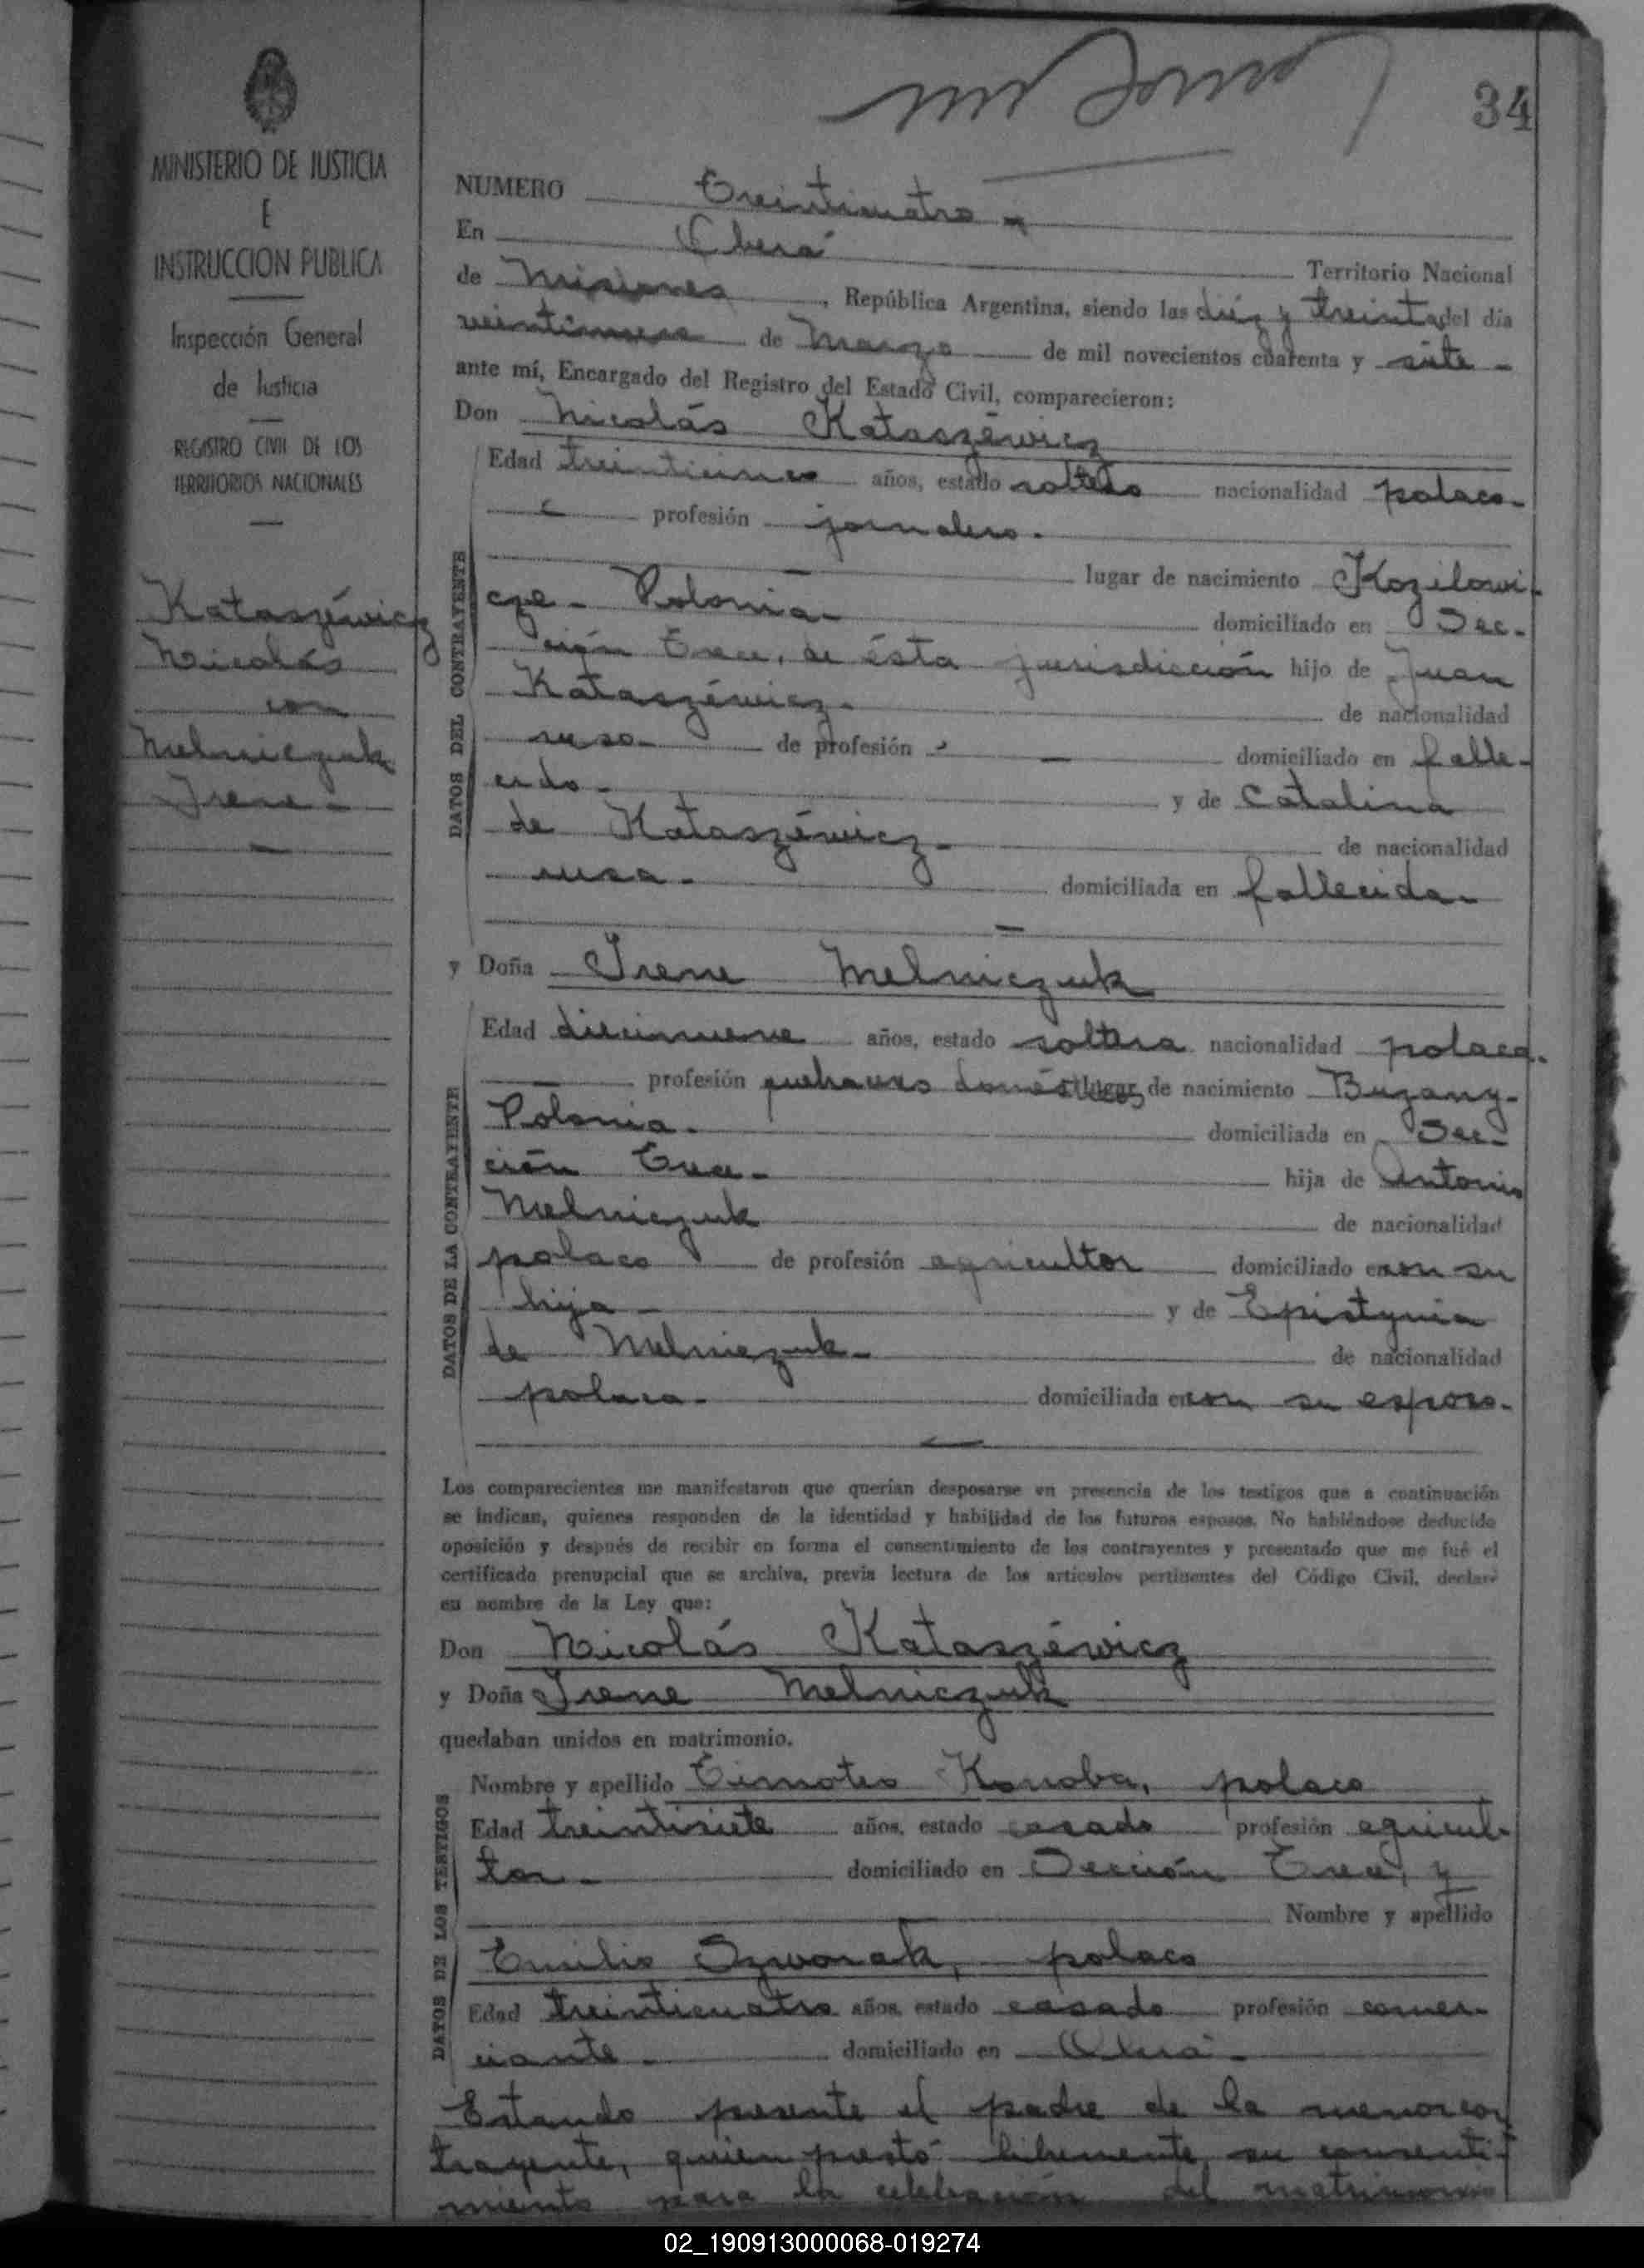 34
MINISTERIO DE JUSTICIA
E
INSTRUCCION PUBLICA
Inspección General
de Justicia
REGISTRO CIVIL DE LOS
TERRITORIOS NACIONALES
Kataszéwicz
Nicolás
con
Melniczuk
Irene -
NUMERO Treinticuatro -
En Oberá Territorio Nacional
de Misiones, República Argentina, siendo las diéz y treinta del día
de Marzo de mil novecientos cuarenta y siete -
ante mí, Encargado del Registro del Estado Civil, comparecieron:
Don Nicolás Kataszéwicz
DATOS DEL CONTRAYENTE
Edad treinticinco años, estado soltero nacionalidad polaco -
profesión jornalero.
lugar de nacimiento Kozilowi-
cze - Polonia - domiciliado en Sec-
ción Trece, de ésta jurisdicción hijo de Juan
Kataszéwicz - de nacionalidad
ruso - de profesión - domiciliado en falle-
cido - y de Catalina
de Kataszéwicz - de nacionalidad
rusa - domiciliada en fallecida -
y Doña Irene Melniczuk
DATOS DE LA CONTRAYENTE
Edad diecinueve años, estado soltera nacionalidad polaca.
profesión quehaceres domésticos lugar de nacimiento Buzany-
Polonia - domiciliada en Sec-
ción Trece - hija de Antonio
Melniczuk de nacionalidad
polaco de profesión agricultor domiciliado en con su
hija - y de Epistynia
de Melniczuk - de nacionalidad
polaca - domiciliada en con su esposo.
Los comparecientes me manifestaron que querían desposarse en presencia de los testigos que a continuación
se indican, quienes responden de la identidad y habilidad de los futuros esposos. No habiéndose deducido
oposición y después de recibir en forma el consentimiento de los contrayentes y presentado que me fué el
certificado prenupcial que se archiva, previa lectura de los artículos pertinentes del Código Civil, declaré
en nombre de la Ley que:
Don Nicolás Kataszéwicz
y Doña Irene Melniczuk
quedaban unidos en matrimonio.
DATOS DE LOS TESTIGOS
Nombre y apellido Timoteo Konoba, polaco
Edad treintisiete años, estado casado profesión agricul-
tor - domiciliado en Sección Trece, y
Nombre y apellido
Emilio Szworak, polaco
Edad treinticuatro años, estado casado profesión comer-
ciante - domiciliado en Oberá -
Estando presente el padre de la menor con
trayente, quien prestó libremente su consenti-
miento para la celebración del matrimonio
02_190913000068-019274